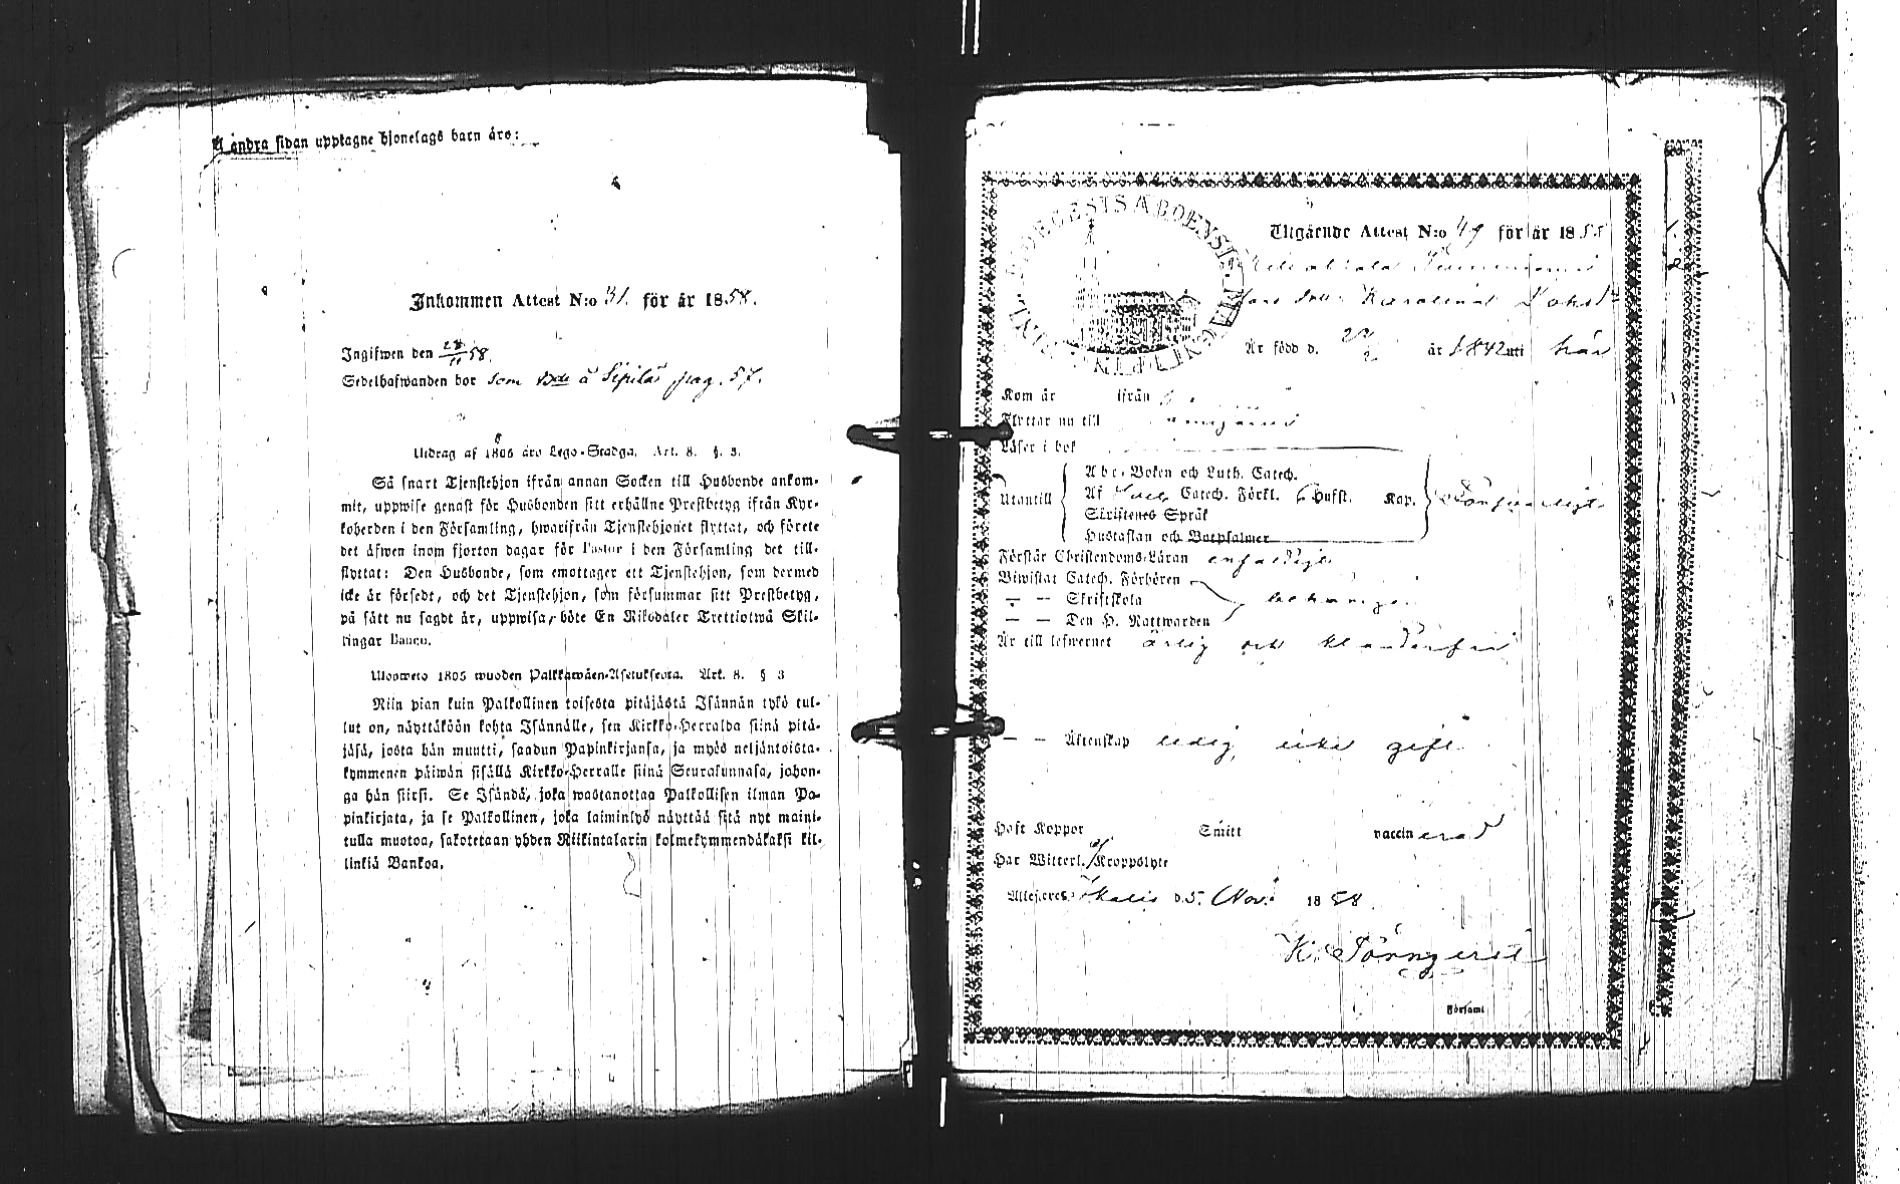 Å andra sidan upptagne hjonelags barn äro:
Inkommen Attest N:o 31. för år 1858.
Ingifwen den 28/11 58.
Sedelhafwanden bor som Dde å Sipilä pag. 57.
Utdrag af 1805 års Lego-Stadga. Art. 8. §. 3.
Så snart Tjenstehjon ifrån annan Socken till Husbonde ankom-
mit, uppwise genast för Husbonden sitt erhållne Prestbetyg ifrån Kyr-
koherden i den Församling, hwarifrån Tjenstehjonet flyttat, och förete
det äfwen inom fjorton dagar för Pastor i den Församling det till-
flyttat: Den Husbonde, som emottager ett Tjenstehjon, som dermed
icke är försedt, och det Tjenstehjon, som försummar sitt Prestbetyg,
på sätt nu sagdt är, uppwisa, böte En Riksdaler Trettiotwå Skil-
lingar Banco.
Ulosweto 1805 wuoden Palkkawäen-Asetuksesta. Art. 8. § 3
Niin pian kuin Palkollinen toisesta pitäjästä Isännän tykö tul-
lut on, näyttäköön kohta Isännälle, sen Kirkko-Herralda siinä pitä-
jäsä, josta hän muutti, saadun Papinkirjansa, ja myös neljäntoista-
kymmenen päiwän sisällä Kirkko-Herralle siinä Seurakunnasa, johon-
ga hän siirsi. Se Isändä, joka wastanottaa Palkollisen ilman Pa-
pinkirjata, ja se Palkollinen, joka laiminlyö näyttää sitä nyt maini-
tulla muotoa, sakotetaan yhden Riikintalarin kolmekymmendäkaksi kil-
linkiä Bankoa.
Utgående Attest N:o 49 för år 1858
Karolina
Är född d. år 1842 uti här
Kom år ifrån
Flyttar nu till
Läser i bok
Abc-Boken och Luth. Catech.
Utantill Af Catech. Förkl. Hufst. Kap.
Skriftenes Språk
Hustaflan och Botpsalmer
Förstår Christendoms-Läran enfaldigt
Biwistat Catech. Förhören
— — Skriftskola behörigen
— — Den H. Nattwarden
Är till lefwernet ärlig och klanderfri
— — Äktenskap ledig, icke gift
Haft Koppor Smitt vaccinerad
Har Witterl. ej Kroppslyte
Attesteres d. 5. Nov. 1858
K. Törnqvist
Församl